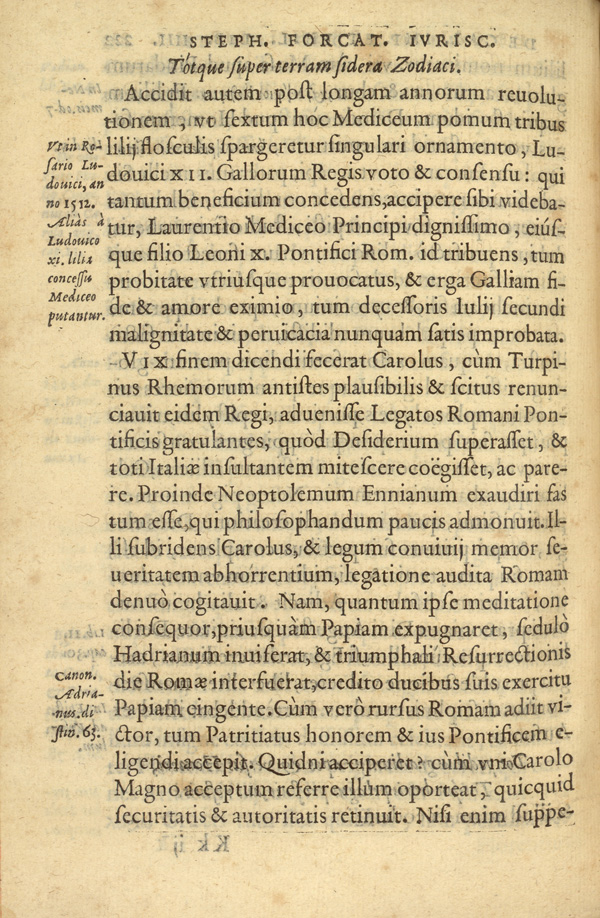 STEPH. FORCAT. IVRISC.
Totque super terram sidera Zodiaci.
Accidit autem post longam annorum reuolu-
tionem, vt sextum hoc Mediceum pomum tribus
lilij flosculis spargeretur singulari ornamento, Lu-
douici XII. Gallorum Regis voto & consensu: qui
tantum beneficium concedens, accipere sibi videba-
tur, Laurentio Mediceo Principi dignissimo, eiús-
que filio Leoni X. Pontifici Rom. id tribuens, tum
probitate vtriusque prouocatus, & erga Galliam fi-
de & amore eximio, tum decessoris Iulij secundi
malignitate & peruicacia nunquam satis improbata.
VIX finem dicendi fecerat Carolus, cùm Turpi-
nus Rhemorum antistes plausibilis & scitus renun-
ciauit eidem Regi, aduenisse Legatos Romani Pon-
tificis gratulantes, quòd Desiderium superasset, &
toti Italiæ insultantem mitescere coëgisset, ac pare-
re. Proinde Neoptolemum Ennianum exaudiri fas
tum esse, qui philosophandum paucis admonuit. Il-
li subridens Carolus, & legum conuiuij memor se-
ueritatem abhorrentium, legatione audita Romam
denuò cogitauit. Nam, quantum ipse meditatione
consequor, priusquàm Papiam expugnaret, sedulò
Hadrianum inuiserat, & triumphali Resurrectionis
die Romæ interfuerat, credito ducibus suis exercitu
Papiam cingente. Cùm verò rursus Romam adiit vi-
ctor, tum Patritiatus honorem & ius Pontificem e-
ligendi accepit. Quidni acciperet? cùm vni Carolo
Magno acceptum referre illum oporteat, quicquid
securitatis & autoritatis retinuit. Nisi enim suppe-
Vt in Ro-
sario Lu-
douici, an
no 1512.
Aliàs à
Ludouico
xi. lilia
concessu
Mediceo
putantur.
Canon.
Adria-
nus. di
stin. 63.